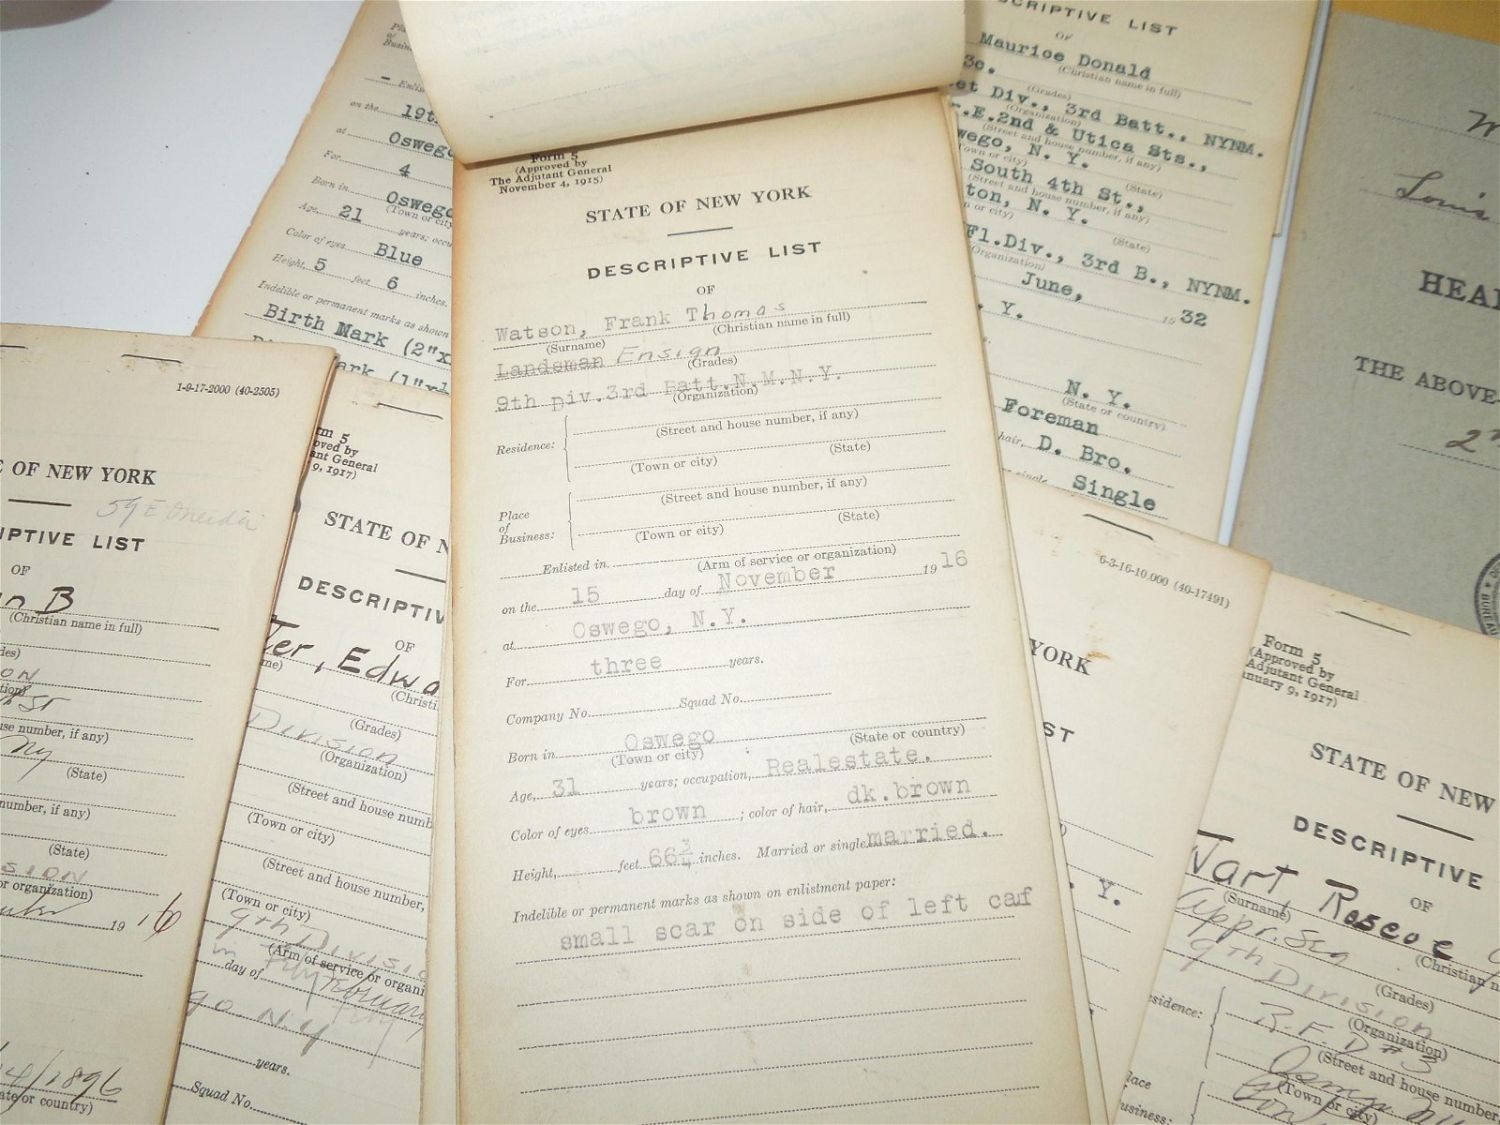 Form 5
(Approved by
The Adjutant General
November 4, 1915)
STATE OF NEW YORK
DESCRIPTIVE LIST
OF
Watson, Frank Thomas
(Surname) (Christian name in full)
Landsman Ensign
(Grades)
9th Div.3rd Batt.N.M.N.Y.
(Organization)
Residence:
(Street and house number, if any)
(Town or city) (State)
Place of Business:
(Street and house number, if any)
(Town or city) (State)
Enlisted in
(Arm of service or organization)
on the 15 day of November 1916
at Oswego, N.Y.
For three years.
Company No. Squad No.
Born in Oswego
(Town or city) (State or country)
Age, 31 years; occupation, Realestate.
Color of eyes brown ; color of hair, dk.brown
Height, feet 66 3/4 inches. Married or single married.
Indelible or permanent marks as shown on enlistment paper:
small scar on side of left caf
on the 19t
at Oswego
For 4
Born in Oswego
(Town or city
Age, 21 years; occu
Color of eyes Blue
Height, 5 feet 6 inches.
Indelible or permanent marks as shown
Birth Mark (2"x
ark (1"x1
SCRIPTIVE LIST
OF
Maurice Donald
3c. (Christian name in full)
(Grades)
et Div., 3rd Batt., NYNM.
(Organization)
r.E.2nd & Utica Sts.,
(Street and house number, if any)
wego, N. Y.
Town or city) (State)
South 4th St.,
(Street and house number, if any)
ton, N. Y.
n or city) (State)
Fl.Div., 3rd B., NYNM.
(Organization)
June, 19 32
. Y.
N. Y.
(State or country)
Foreman
hair, D. Bro.
single Single
W
Louis
HEA
THE ABOVE-
1-9-17-2000 (40-2505)
E OF NEW YORK
59 E Oneida
IPTIVE LIST
OF
n B
(Christian name in full)
des)
ON
tion)
ST
use number, if any)
NY
(State)
number, if any)
(State)
SION
or organization)
19 16
4/1896
ate or country)
rm 5
oved by
ant General
9, 1917)
STATE OF N
DESCRIPTIV
OF
ter, Edwa
me) (Christi
(Grades)
Division
(Organization)
(Street and house numb
(Town or city)
(Street and house number,
(Town or city)
9th Divisio
(Arm of service or organi
day of February
go N.Y
years.
Squad No.
6-3-16-10,000 (40-17491)
YORK
ST
. Y.
Form 5
(Approved by
Adjutant General
anuary 9, 1917)
STATE OF NEW
DESCRIPTIVE
OF
Wart, Roscoe
(Surname) (Christian n
Appr. Sea
(Grades)
9th Division
(Organization)
esidence:
R.F.D #3
(Street and house number,
(Town or city)
lace
usiness: